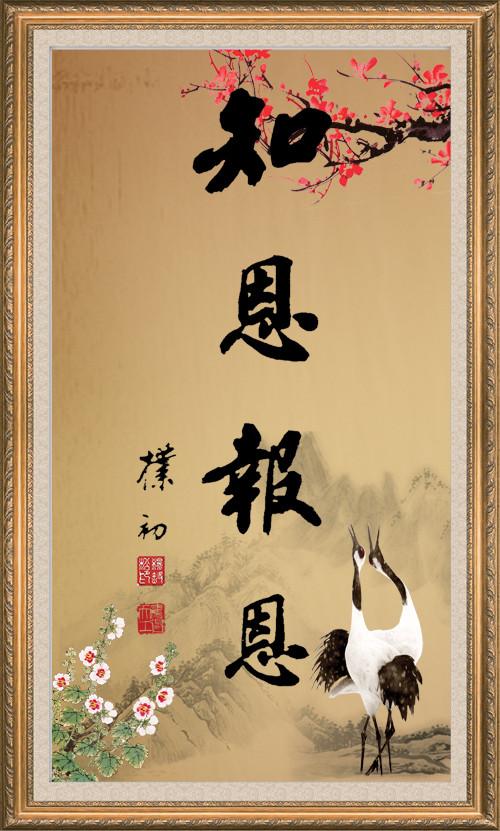 知恩報恩
樸初